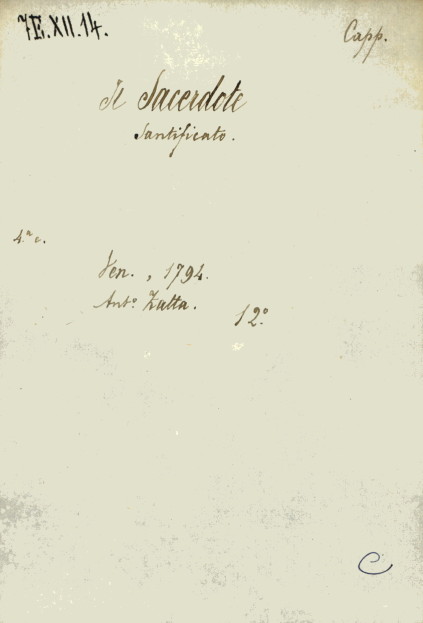 7E.XII.14.
Capp.
Il Sacerdote
Santificato.
4.ª c.
Ven., 1794.
Ant.º Zatta.
12.º
C